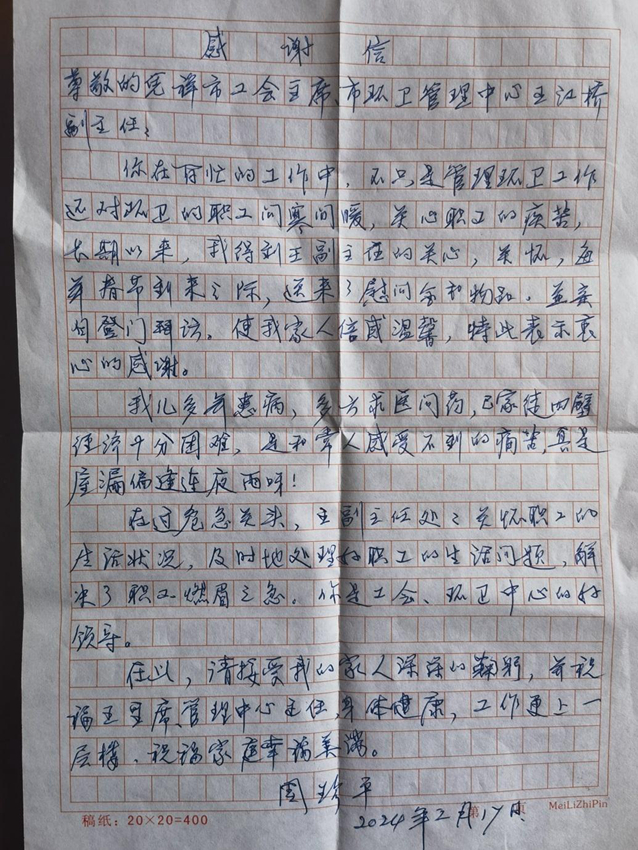 感谢信
尊敬的凭祥市工会主席、市环卫管理中心王江桥
副主任：
你在百忙的工作中，不只是管理环卫工作
还对环卫的职工问寒问暖，关心职工的疾苦，
长期以来，我得到王副主任的关心，关怀，每
年春节到来之际，送来了慰问金和物品，并亲
自登门拜访，使我家人倍感温馨，特此表示衷
心的感谢。
我儿多年患病，多方求医问药，已家徒四壁
经济十分困难，是和常人感受不到的痛苦，真是
屋漏偏逢连夜雨呀！
在过危急关头，王副主任处之关怀职工的
生活状况，及时地处理好职工的生活问题，解
决了职工燃眉之急。你是工会、环卫中心的好
领导。
在此，请接受我的家人深深的鞠躬，并祝
福王主席、管理中心主任，身体健康，工作更上一
层楼，祝福家庭幸福美满。
周 平
2024年2月17日
第 页
MeiLiZhiPin
稿纸：20×20=400